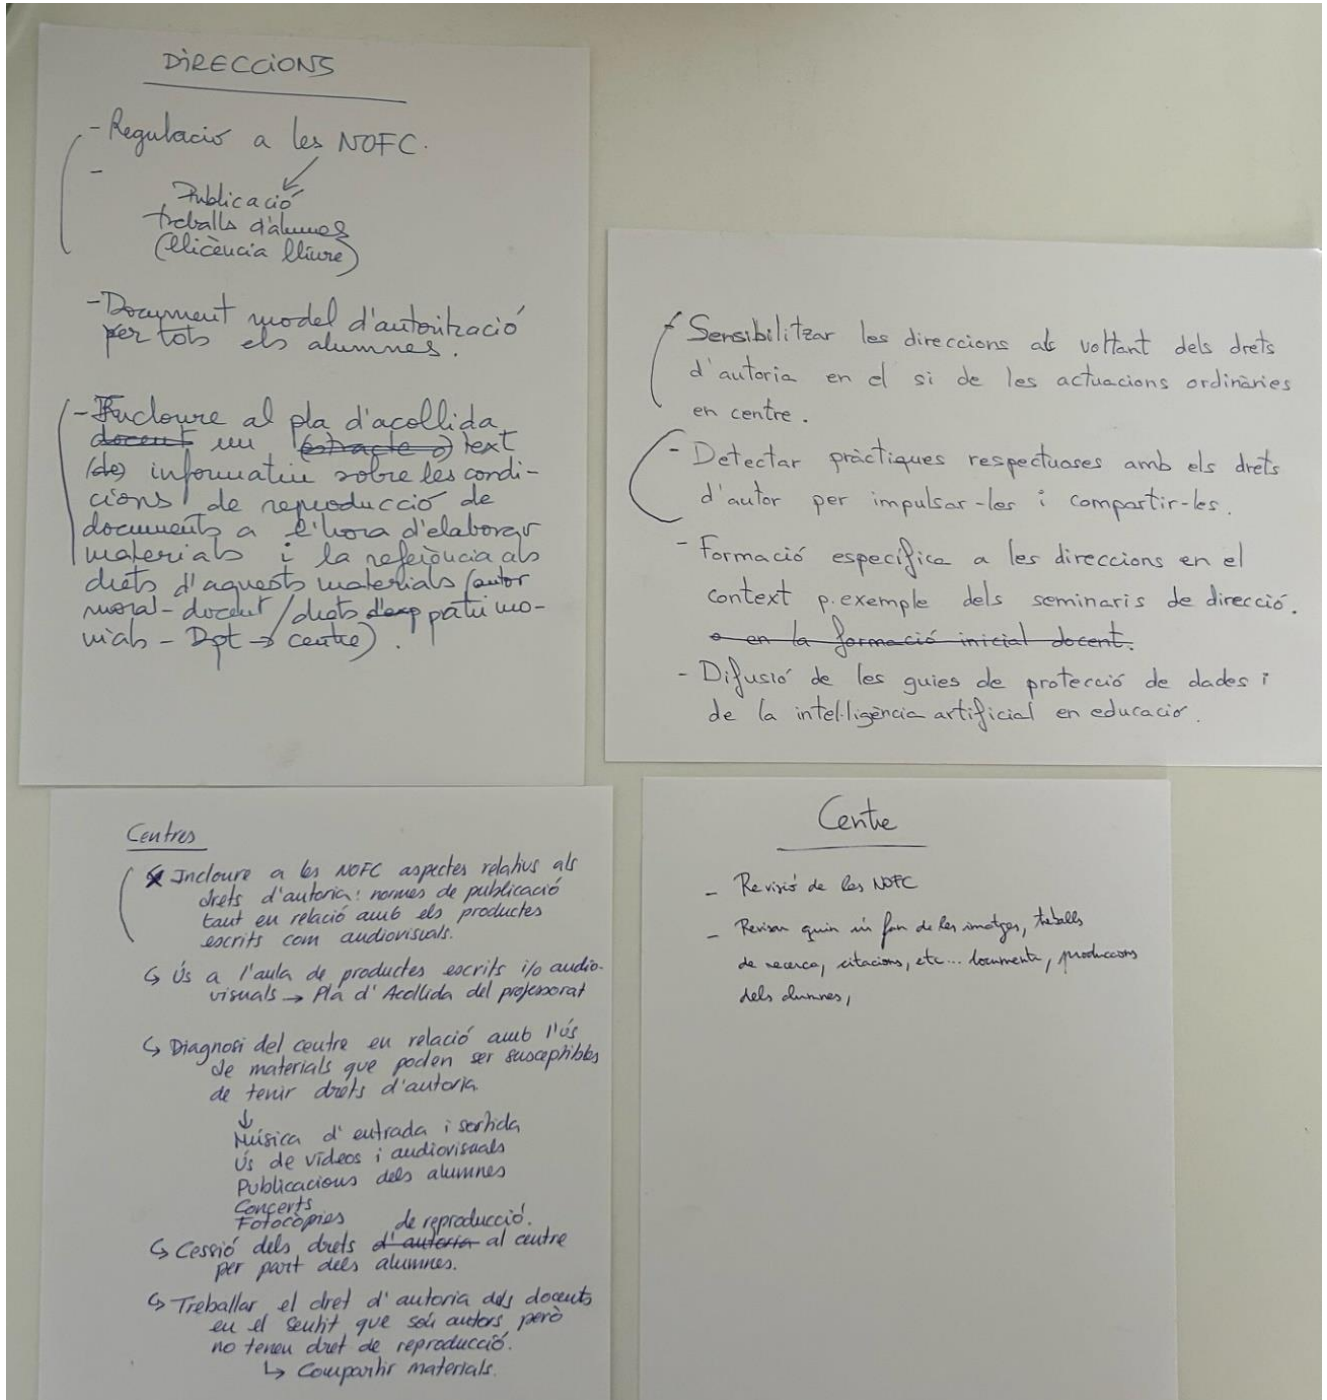 DIRECCIONS
- Regulació a les NOFC.
-
Publicació
treballs d'alumnes
(llicència lliure)
- Document model d'autorització
per tots els alumnes.
- Incloure al pla d'acollida
docent un (extracte o) text
(de) informatiu sobre les condi-
cions de reproducció de
documents a l'hora d'elaborar
materials i la referència als
drets d'aquests materials (autor
moral - docent / drets d'exp patrimo-
nials - Dpt → centre).
- Sensibilitzar les direccions al voltant dels drets
d'autoria en el si de les actuacions ordinàries
en centre.
- Detectar pràctiques respectuoses amb els drets
d'autor per impulsar-les i compartir-les.
- Formació específica a les direccions en el
context p.exemple dels seminaris de direcció.
o en la formació inicial docent.
- Difusió de les guies de protecció de dades i
de la intel·ligència artificial en educació.
Centres
Incloure a les NOFC aspectes relatius als
drets d'autoria: normes de publicació
tant en relació amb els productes
escrits com audiovisuals.
↳ Ús a l'aula de productes escrits i/o audio-
visuals → Pla d'Acollida del professorat
↳ Diagnosi del centre en relació amb l'ús
de materials que poden ser susceptibles
de tenir drets d'autoria
↓
Música d'entrada i sortida
Ús de vídeos i audiovisuals
Publicacions dels alumnes
Concerts
Fotocòpies
de reproducció.
↳ Cessió dels drets d'autoria al centre
per part dels alumnes.
↳ Treballar el dret d'autoria dels docents
en el sentit que són autors però
no tenen dret de reproducció.
↳ Compartir materials.
Centre
- Revisió de les NOFC
- Revisar quin ús fan de les imatges, treballs
de recerca, citacions, etc... documents, produccions
dels alumnes,